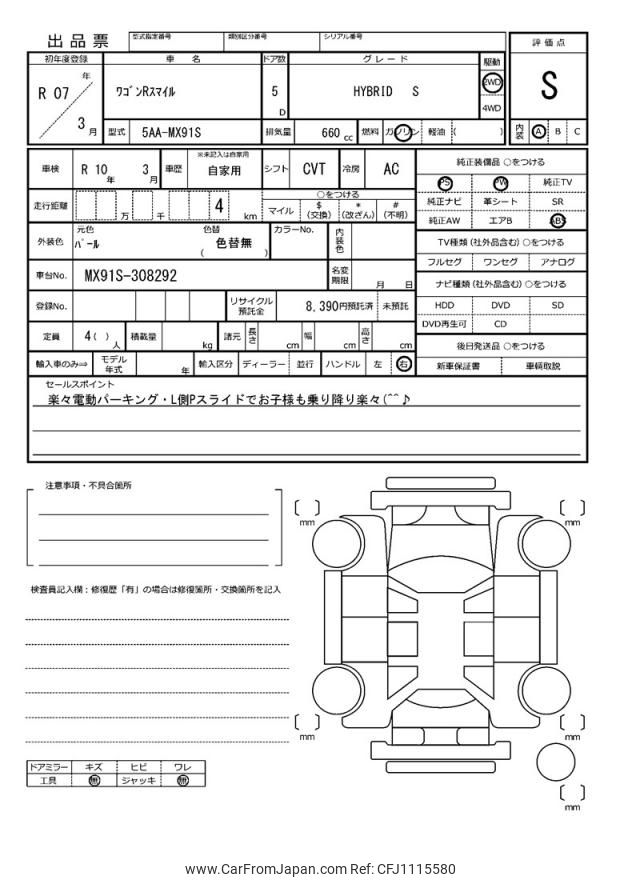 出品票 型式指定番号 類別区分番号 シリアル番号
評価点
初年度登録 車名 ドア数 グレード 駆動
年
R 07 ワゴンRスマイル 5 HYBRID S 2WD S
D 4WD
3月 型式 5AA-MX91S 排気量 660 cc 燃料 ガソリン 軽油 ( ) 内装 A B C
車検 R 10年 3月 車歴 ※未記入は自家用 自家用 シフト CVT 冷房 AC 純正装備品 ○をつける
PS PW 純正TV
走行距離 万 千 4 km ○をつける 純正ナビ 革シート SR
マイル $(交換) *(改ざん) #(不明) 純正AW エアB ABS
外装色 元色 パール 色替 色替無 ( ) カラーNo. 内装色 TV種類(社外品含む)○をつける
フルセグ ワンセグ アナログ
車台No. MX91S-308292 名変期限 月 日 ナビ種類(社外品含む)○をつける
登録No. リサイクル預託金 8,390円預託済 未預託 HDD DVD SD
DVD再生可 CD
定員 4( )人 積載量 kg 諸元 長さ cm 幅 cm 高さ cm 後日発送品 ○をつける
輸入車のみ⇒ モデル年式 年 輸入区分 ディーラー 並行 ハンドル 左 右 新車保証書 車輌取説
セールスポイント
楽々電動パーキング・L側Pスライドでお子様も乗り降り楽々(^^♪
注意事項・不具合箇所
mm mm
検査員記入欄:修復歴「有」の場合は修復箇所・交換箇所を記入
mm mm
ドアミラー キズ ヒビ ワレ
工具 無 ジャッキ 無
mm
www.CarFromJapan.com Ref: CFJ1115580